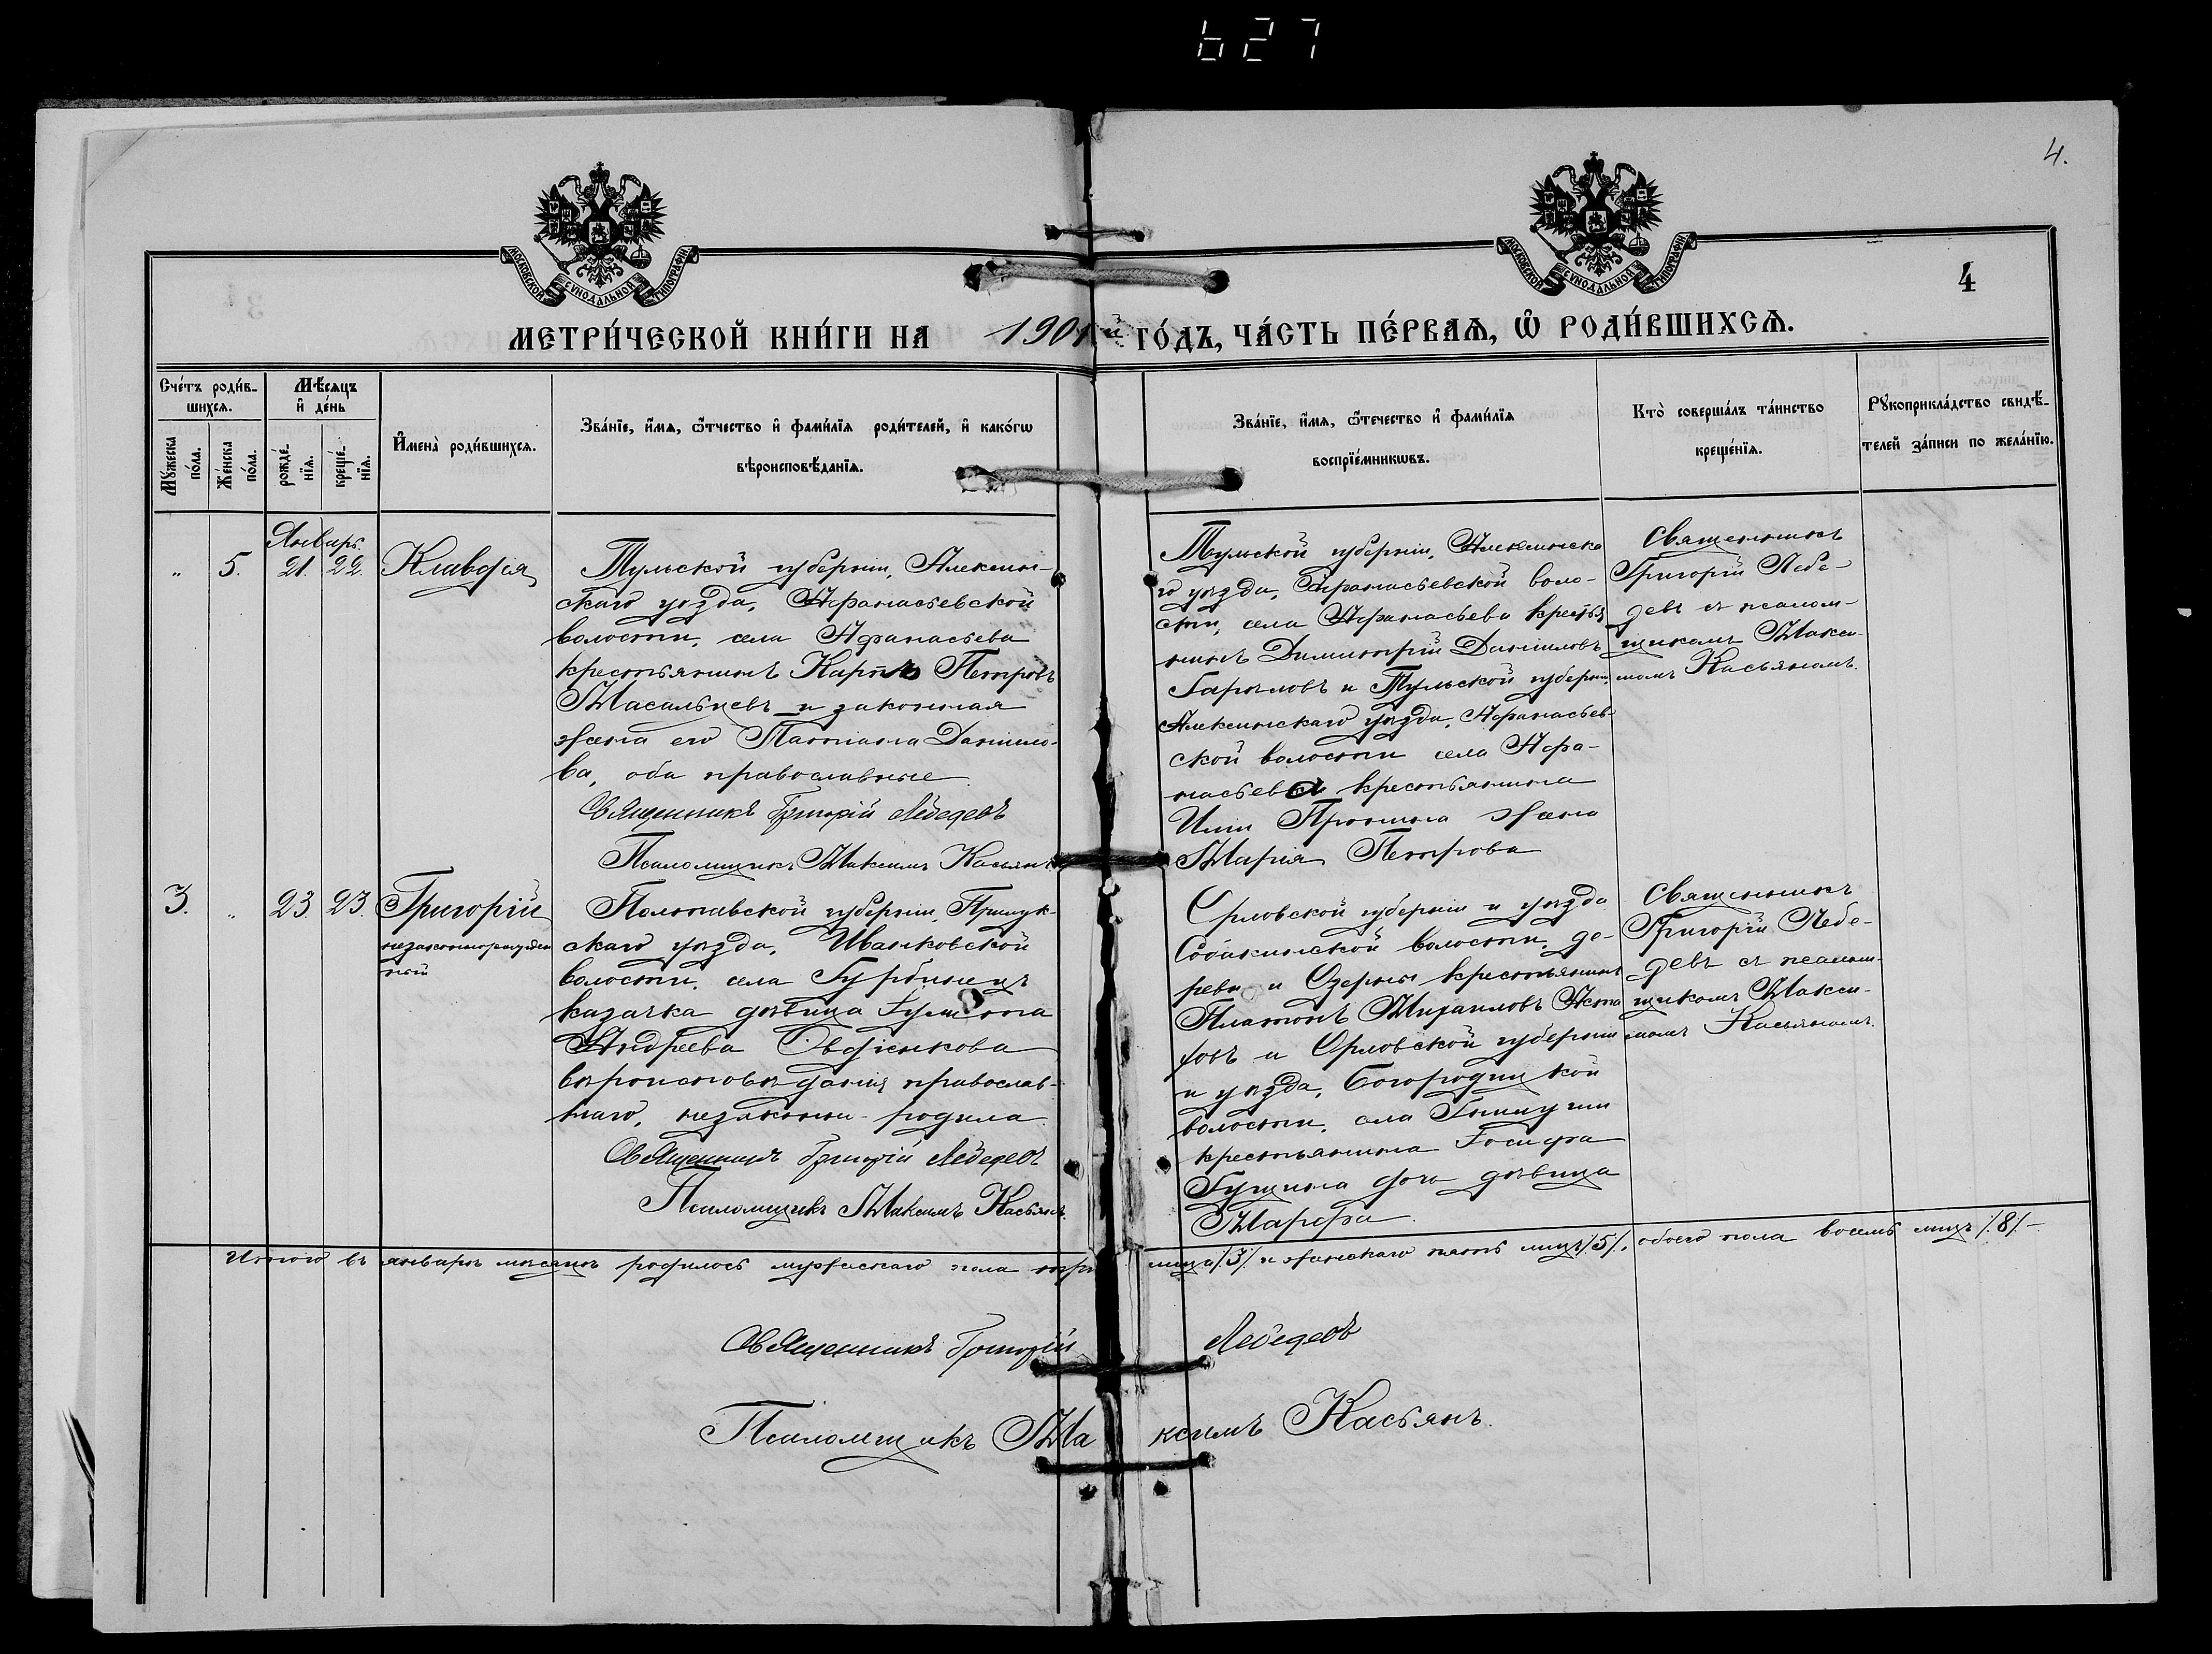 627
4.
МОСКОВСКОЙ СѴНОДАЛЬНОЙ ТИПОГРАФІИ
МОСКОВСКОЙ СѴНОДАЛЬНОЙ ТИПОГРАФІИ
4
МЕТРИ́ЧЕСКОЙ КНИ́ГИ НА 1901й ГО́ДЪ, ЧА́СТЬ ПЕ́РВАѦ, Ѡ҆ РОДИ́ВШИХСѦ.
Сче́тъ роди́в-
шихсѧ.
Мꙋ́жеска
по́ла.
Же́нска
по́ла.
Мѣ́сѧцъ
и҆ де́нь
рожде́-
нїѧ.
креще́-
нїѧ.
И҆мена̀ роди́вшихсѧ.
Зва́нїе, и҆́мѧ, ѻ҆́тчество и҆ фами́лїѧ роди́телей, и҆ како́гѡ
вѣроисповѣ́данїѧ.
Зва́нїе, и҆́мѧ, ѻ҆́течество и҆ фами́лїѧ
воспрїе́мникѡвъ.
Кто̀ соверша́лъ та́инство
креще́нїѧ.
Рꙋкоприкла́дство свидѣ́-
телей за́писи по жела́нїю.
Январь.
„ 5. 21. 22. Клавдія
Тульской губерніи, Алексин-
скаго уѣзда, Афанасьевской
волости, села Афанасьева
крестьянинъ Карпъ Петровъ
Масальцевъ и законная
жена его Татіана Данило-
ва, оба православные
Священникъ Григорій Лебедевъ
Псаломщикъ Максимъ Касьянъ
Тульской губерніи, Алексинска
го уѣзда, Афанасьевской воло-
сти, села Афанасьева крестья
нинъ Димитрій Даниловъ
Гариловъ и Тульской губерніи,
Алексинскаго уѣзда, Афанасьев-
ской волости села Афа-
насьева крестьянина
Иліи Пронина жена
Марія Петрова
Священникъ
Григорій Лебе-
девъ съ псалом-
щикомъ Макси-
момъ Касьяномъ.
3. „ 23 23. Григорій
незаконнорожден
ный
Полтавской губерніи, Прилук-
скаго уѣзда, Иванковской
волости, села Гурбинецъ
казачка дѣвица Гули та
Андреева Овдіенкова
вѣроисповѣданія православ-
наго, незаконно-родила
Священникъ Григорій Лебедевъ
Псаломщикъ Максимъ Касьянъ.
Орловской губерніи и уѣзда
Собакинской волости, де-
ревни Озерны крестьянинъ
Платонъ Михаиловъ Аста
фовъ и Орловской губерніи
и уѣзда, Богородицкой
волости, села
крестьянина Іосифа
Гущина дочь дѣвица
Марфа.
Священникъ
Григорій Лебе-
девъ съ псалом-
щикомъ Макси-
момъ Касьяномъ.
Итого въ январѣ мѣсяцѣ родилось мужескаго пола три лица /3/ и женскаго пять лицъ /5/, обоего пола восемь лицъ /8/-
Священникъ Григорій Лебедевъ
Псаломщикъ Максимъ Касьянъ.